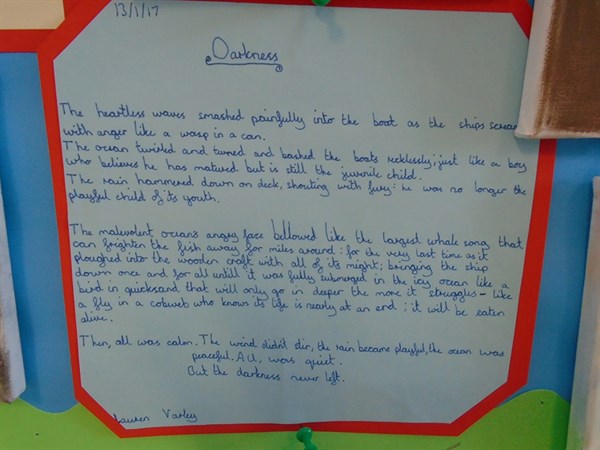 13/1/17
Darkness
The heartless waves smashed painfully into the boat as the ships scream
with anger like a wasp in a can.
The ocean twirled and turned and bashed the boats recklessly; just like a boy
who believes he has matured but is still the juvenile child.
The rain hammered down on deck, shouting with fury: he was no longer the
playful child of its youth.
The malevolent oceans angry face bellowed like the largest whale song that
can frighten the fish away for miles around: for the very last time as it
ploughed into the wooden craft with all of its might; bringing the ship
down once and for all untill it was fully submerged in the icy ocean like a
bird in quicksand that will only go in deeper the more it struggles - like
a fly in a cobweb who knows its life is nearly at an end; it will be eaten
alive.
Then, all was calm. The wind didn't stir, the rain became playful, the ocean was
peaceful. All was quiet.
But the darkness never left.
Lauren Varley